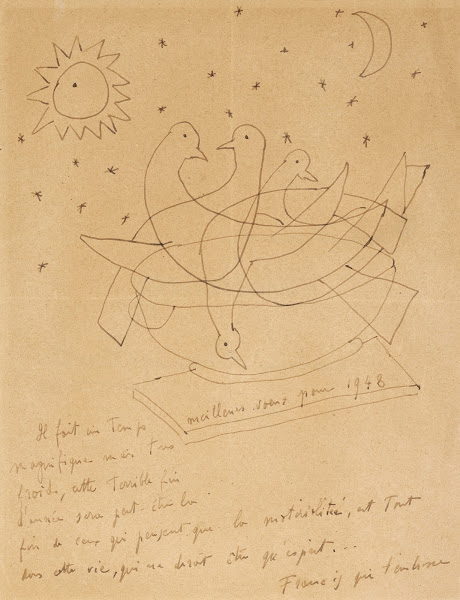 meilleurs voeux pour 1948
Il fait un Temps
magnifique mais Tres
froid, cette Terrible fin
d'année sera peut-être la
fin de ceux qui pensent que la est Tout
dans cette vie, qui ne devrait être qu'esprit...
Francis qui t'embrasse